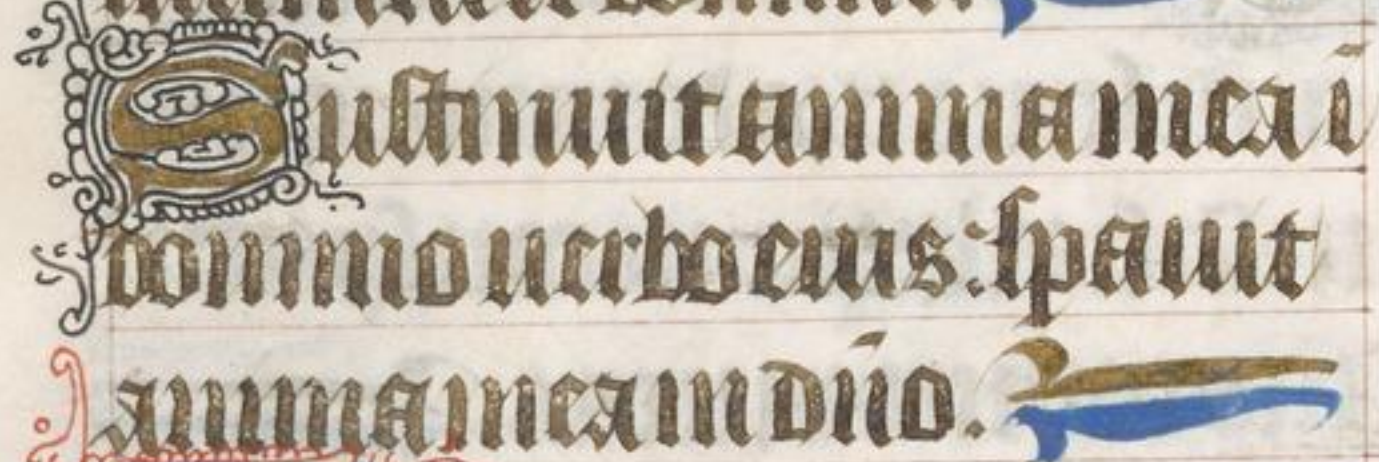 Sustinuit anima mea ī
domino uerbo eius: sꝑauit
anima mea in dn̄o.